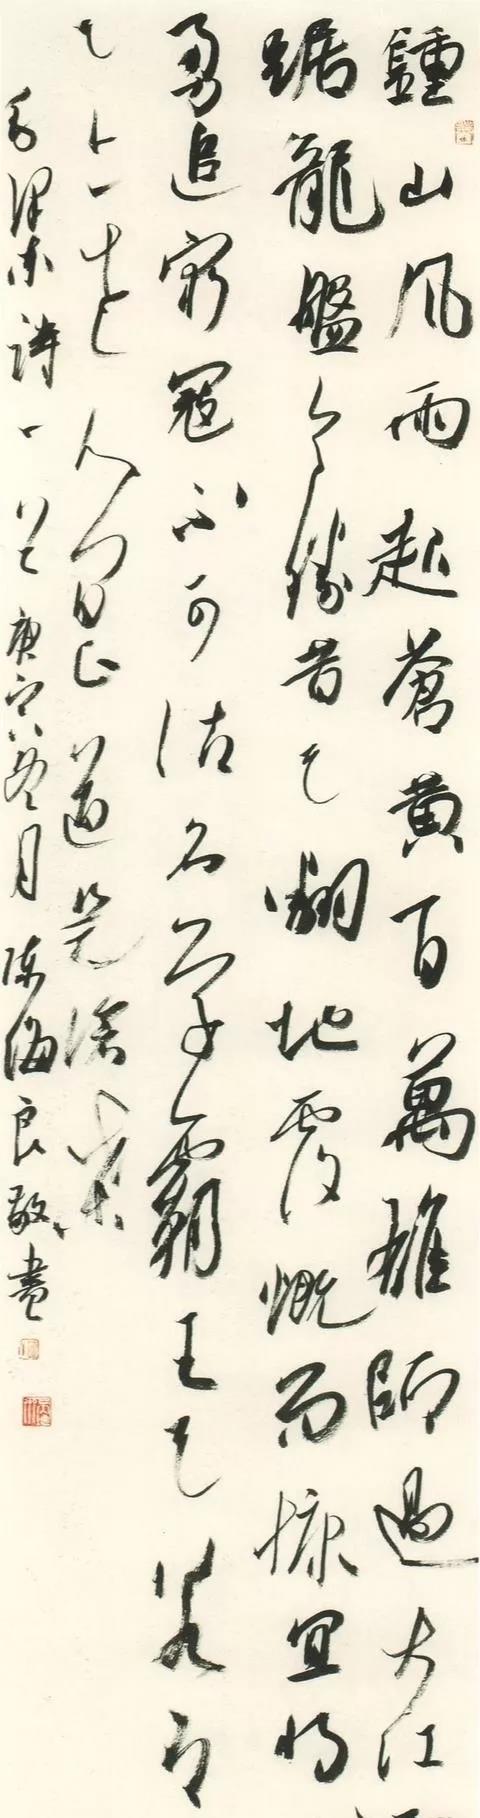 鍾山风雨起蒼黄百萬雄師過大江
踞龍盤今勝昔天翻地覆慨而慷宜将
勇追窮寇不可沽名學霸王天若有
天亦老人間正道是滄桑
毛澤東詩一首庚寅冬月陳海良敬書